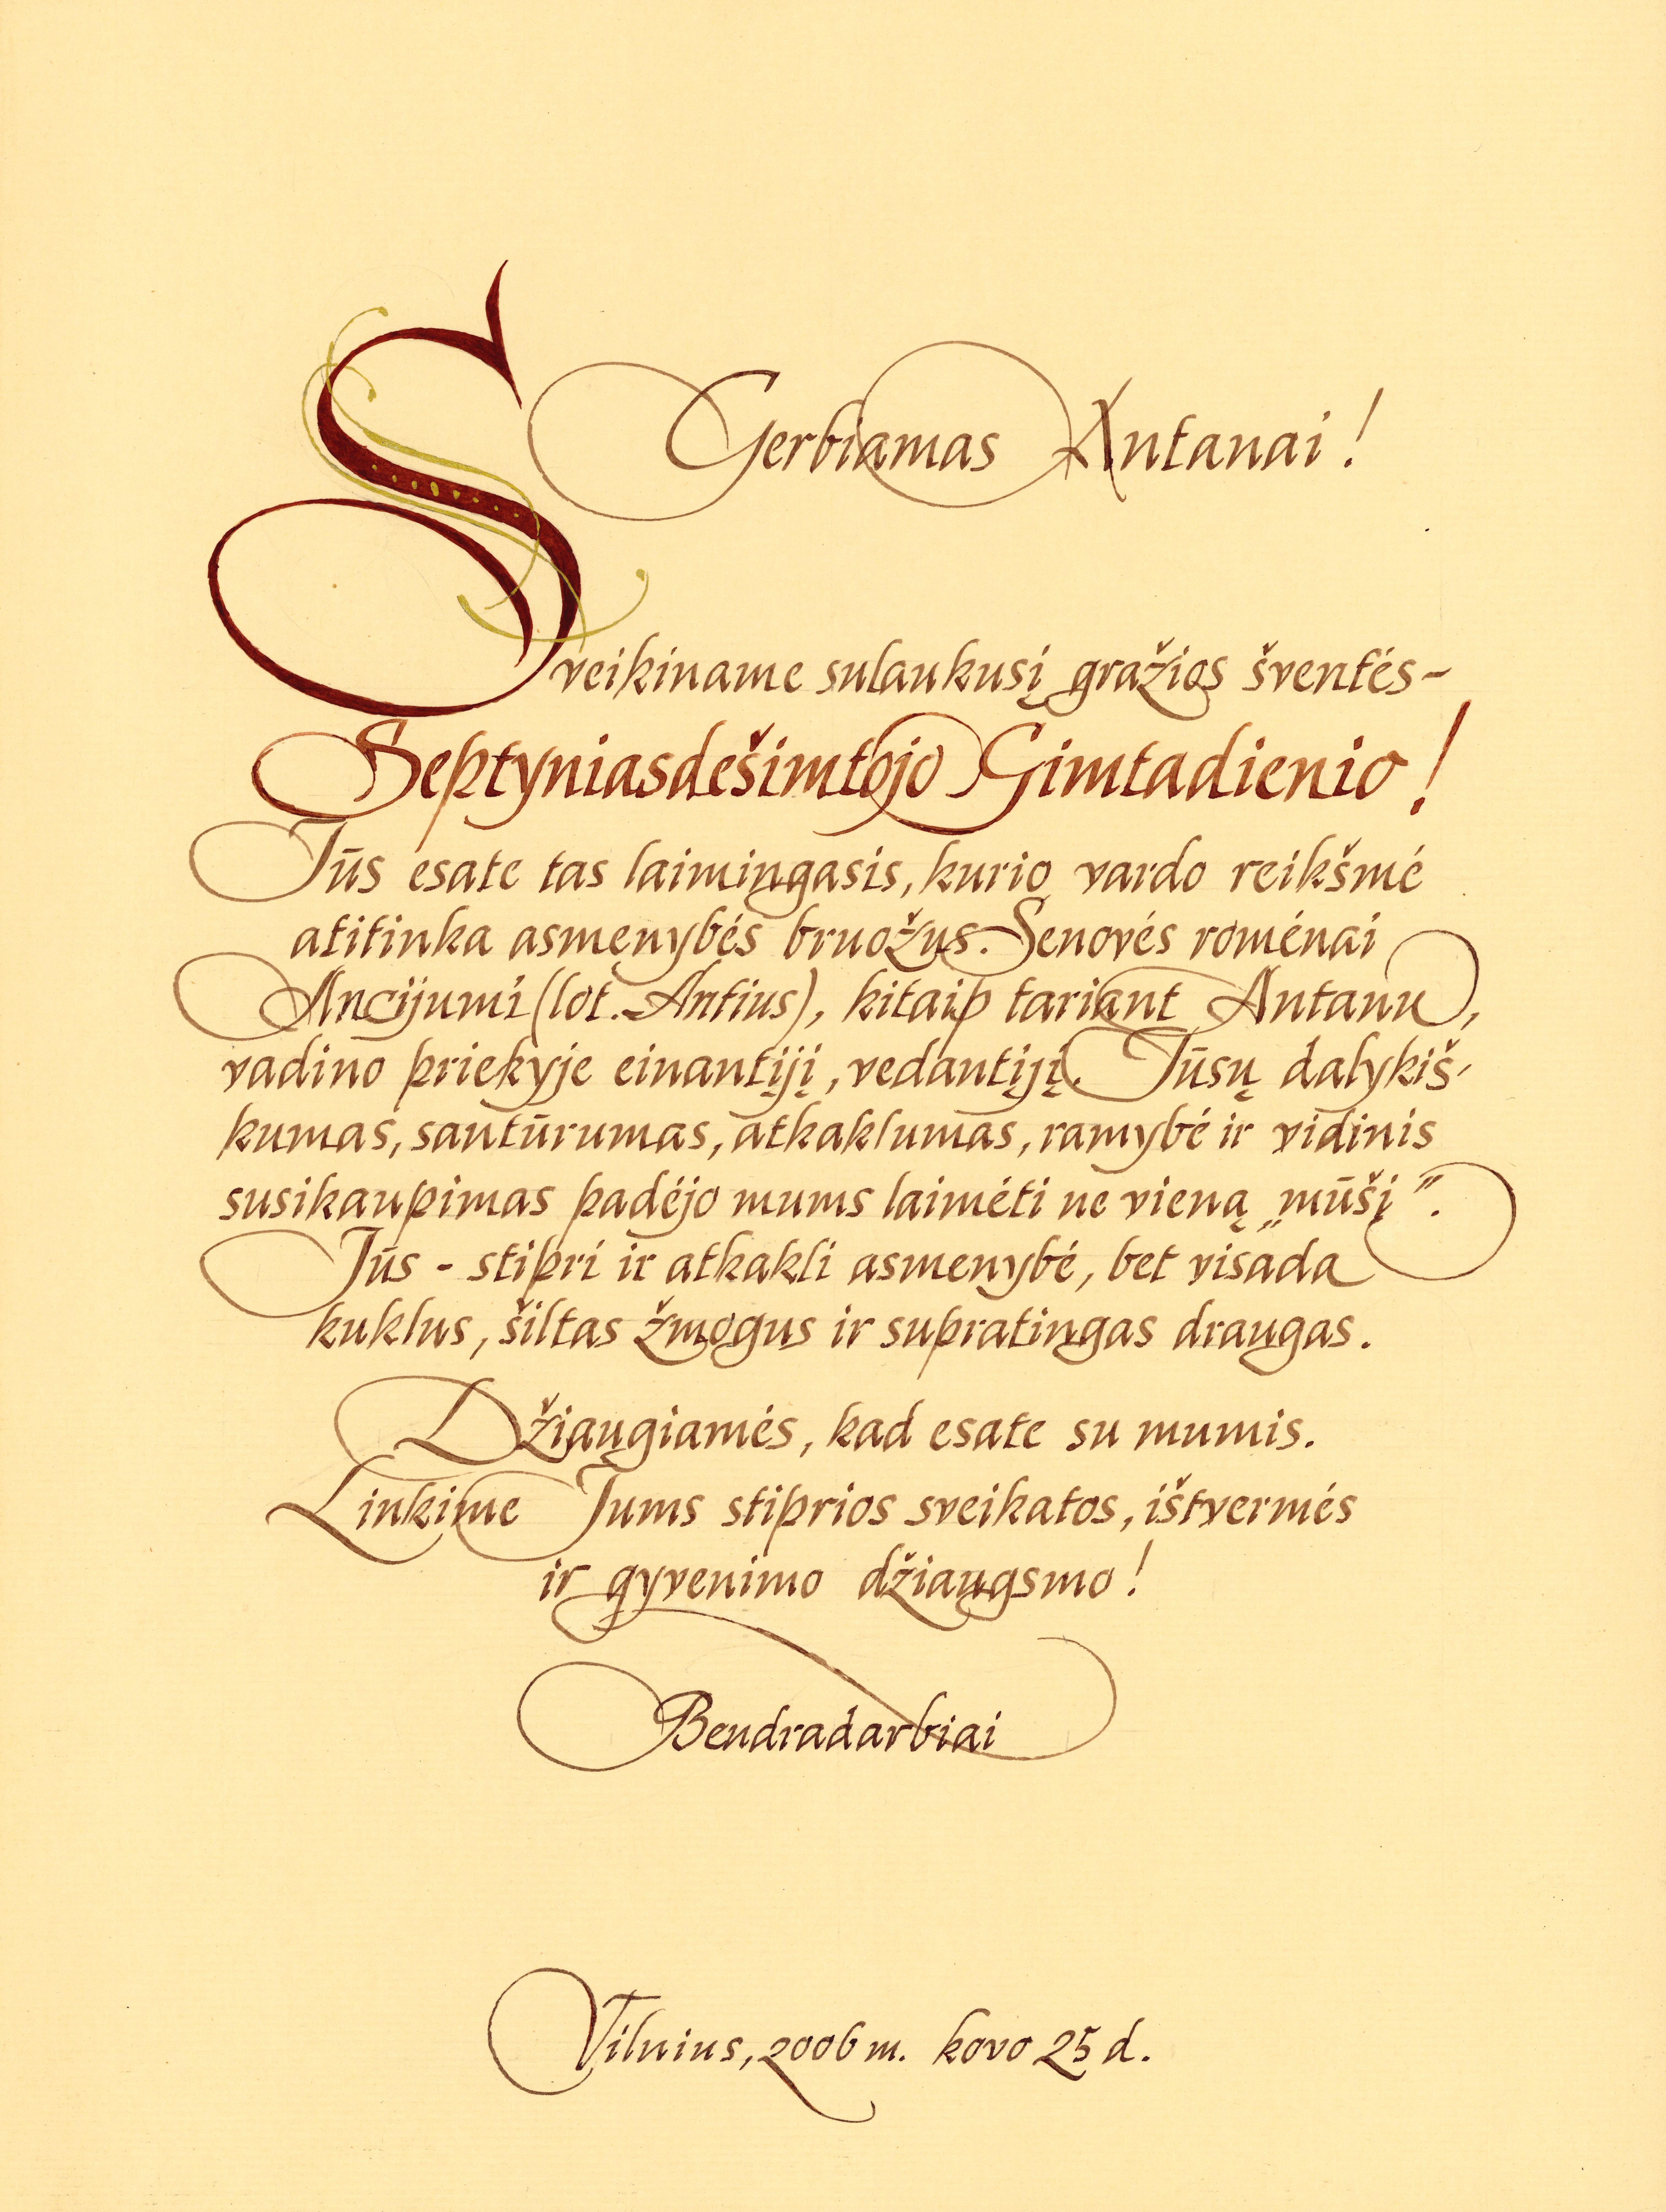 Gerbiamas Antanai!
Sveikiname sulaukusį gražios šventės-
Septyniasdešimtojo Gimtadienio!
Jūs esate tas laimingasis, kurio vardo reikšmė
atitinka asmenybės bruožus. Senovės romėnai
Ancijumi (lot. Antius), kitaip tariant Antanu,
vadino priekyje einantįjį, vedantįjį. Jūsų dalykiš-
kumas, santūrumas, atkaklumas, ramybė ir vidinis
susikaupimas padėjo mums laimėti ne vieną „mūšį”.
Jūs - stipri ir atkakli asmenybė, bet visada
kuklus, šiltas žmogus ir supratingas draugas.
Džiaugiamės, kad esate su mumis.
Linkime Jums stiprios sveikatos, ištvermės
ir gyvenimo džiaugsmo!
Bendradarbiai
Vilnius, 2006 m. kovo 25 d.